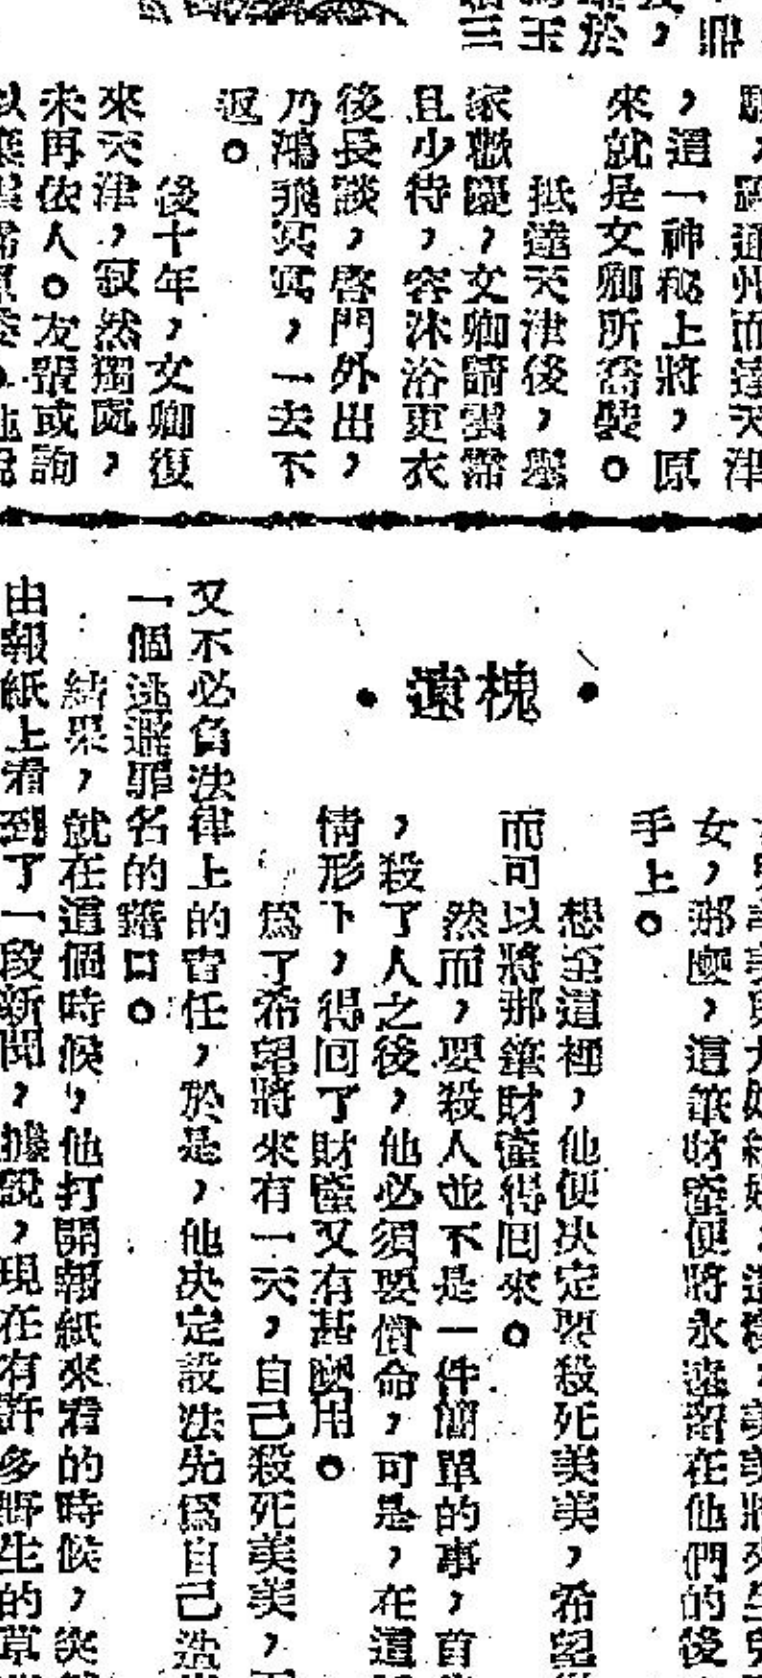 鼎
，
於
玉
三
，通州而達天津
，這一神秘上將，原
來就是文卿所喬裝。
抵達天津後，舉
家歡慶，文卿請雲霈
且少待，容沐浴更衣
後長談，啓門外出，
乃鴻飛冥冥，一去不
返。
後十年，文卿復
來天津，寂然獨處，
未再依人。友輩或詢
•槐遠•
女，那麼，這筆財產便將永遠留在他們的後
手上。
想至這裡，他便決定要殺死美美，希望
而可以將那筆財產得回來。
然而，要殺人並不是一件簡單的事，首
，殺了人之後，他必須要償命，可是，在這
情形下，得回了財產又有甚麼用。
爲了希望將來有一天，自己殺死美美，
又不必負法律上的責任，於是，他決定設法先爲自己
一個逃避罪名的藉口。
結果，就在這個時候，他打開報紙來看的時候，突
由報紙上看到了一段新聞，據說，現在有許多野生的草